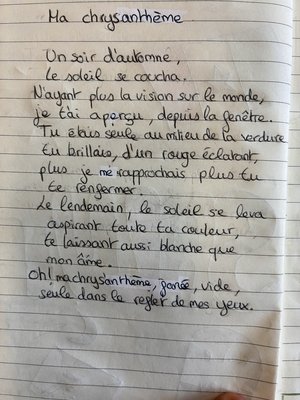 Ma chrysanthème
Un soir d'automne,
le soleil se coucha.
N'ayant plus la vision sur le monde,
je t'ai aperçu, depuis la fenêtre.
Tu étais seule au milieu de la verdure
tu brillais, d'un rouge éclatant,
plus je me rapprochais plus tu
te renfermer.
Le lendemain, le soleil se leva
aspirant toute ta couleur,
te laissant aussi blanche que
mon âme.
Oh! ma chrysanthème, fanée, vide,
seule dans le reflet de mes yeux.